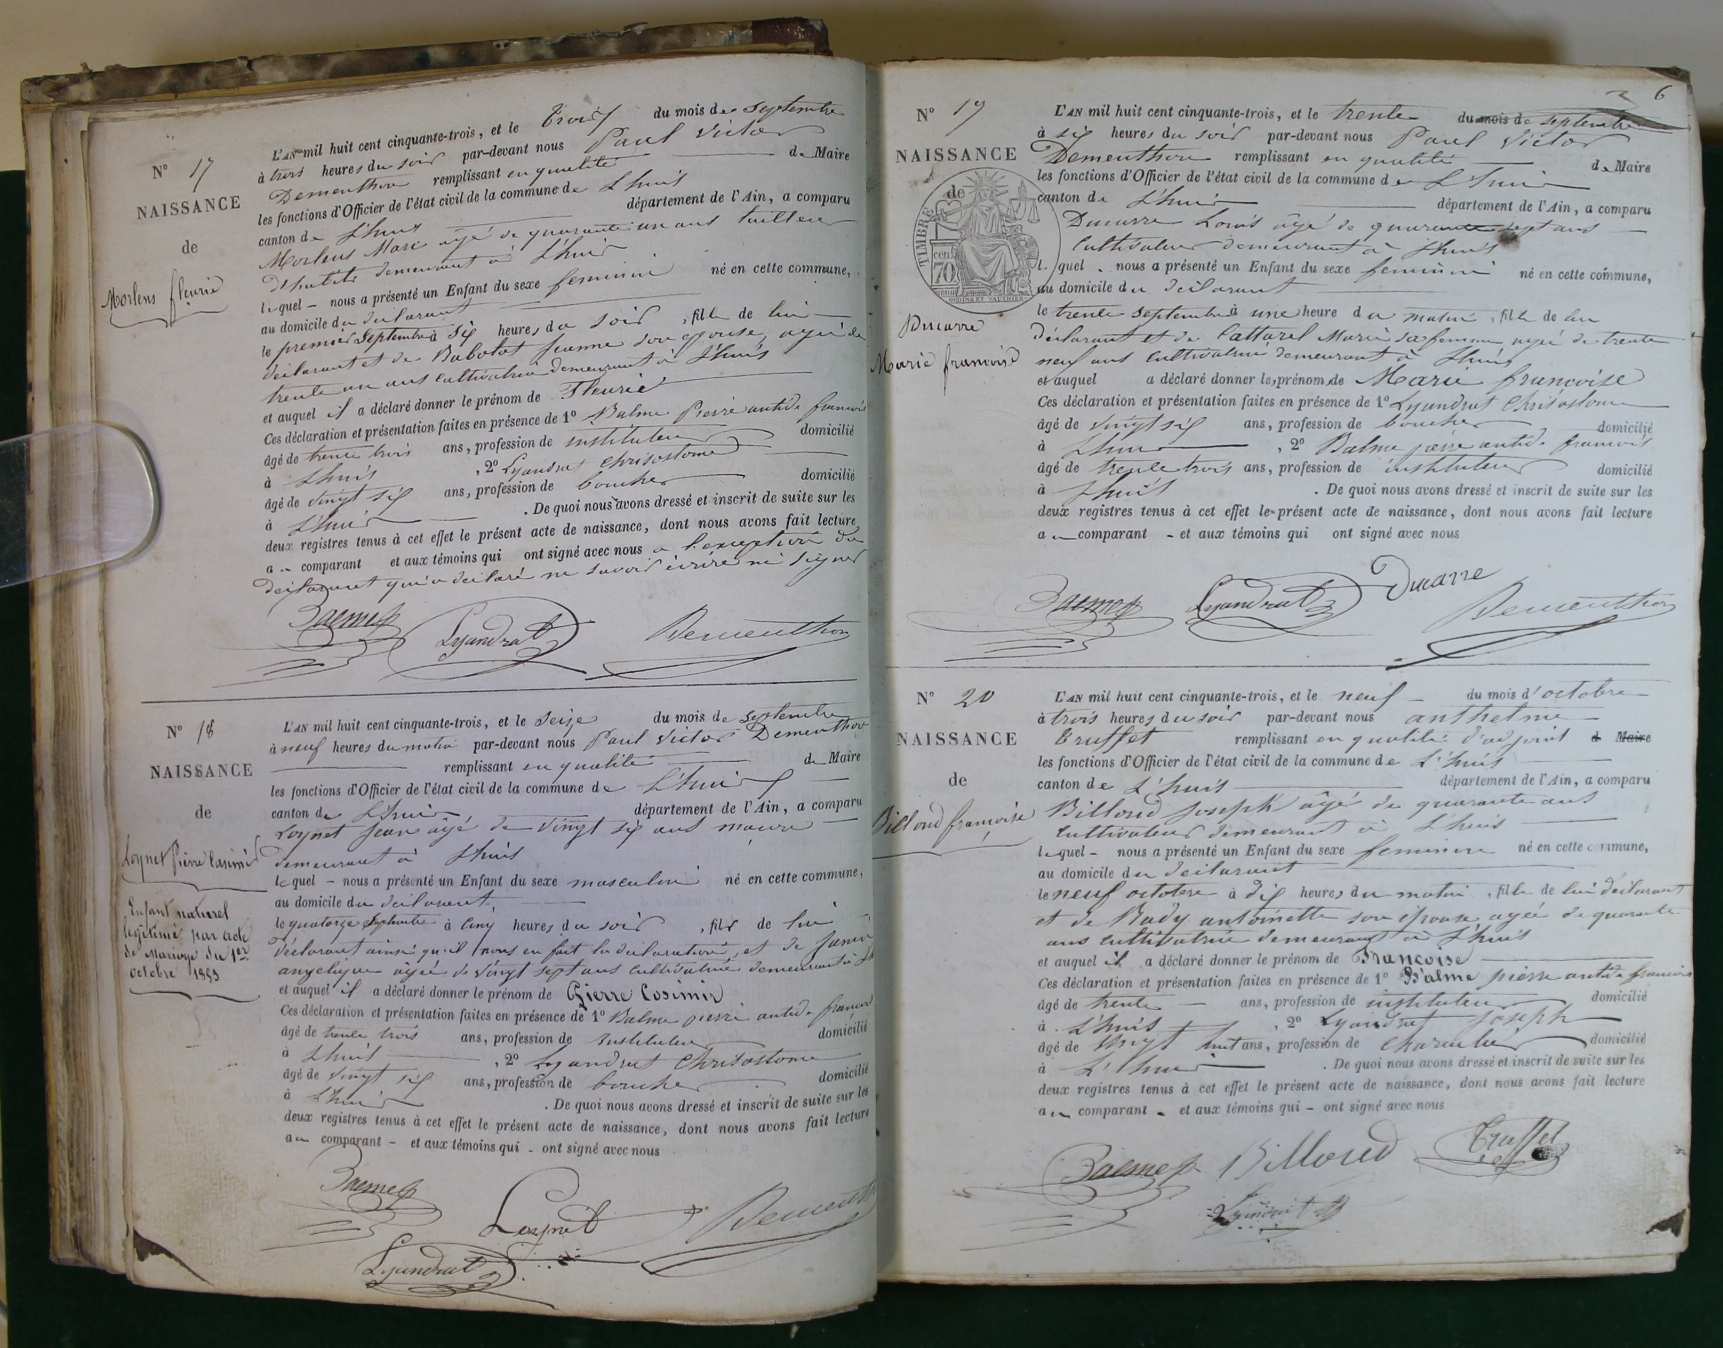 N° 17
NAISSANCE
de
Morlens fleurie
L'AN mil huit cent cinquante-trois, et le Trois du mois de septembre
à trois heures du soir par-devant nous Paul Victor
Dementhon remplissant en qualité de Maire
les fonctions d'Officier de l'état civil de la commune de L'huis
canton de L'huis département de l'Ain, a comparu
Morlens Marc âgé de quarante un ans tuillier
d'habitude demeurant à L'huis
lequel nous a présenté un Enfant du sexe feminin né en cette commune,
au domicile du declarant
le premier Septembre à Six heures du Soir, fille de lui
déclarant et de Babolat Jeanne son épouse, agée de
trente un ans cultivatrice demeurant à L'huis
et auquel il a déclaré donner le prénom de Fleurie
Ces déclaration et présentation faites en présence de 1° Balme Pierre antide francois
âgé de trente trois ans, profession de instituteur domicilié
à L'huis, 2° Lyandrat Chrisostome
âgé de vingt six ans, profession de boucher domicilié
à L'huis. De quoi nous avons dressé et inscrit de suite sur les
deux registres tenus à cet effet le présent acte de naissance, dont nous avons fait lecture
au comparant et aux témoins qui ont signé avec nous a l'exception du
declarant qui a declaré ne savoir écrire ni signer
Balme Lyandrat Dementhon
N° 18
NAISSANCE
de
Loynet Pierre Casimir
Enfant naturel
legitimé par acte
de Mariage du 1er
octobre 1853
L'AN mil huit cent cinquante-trois, et le seize du mois de septembre
à neuf heures du matin par-devant nous Paul Victor Dementhon
remplissant en qualité de Maire
les fonctions d'Officier de l'état civil de la commune de L'huis
canton de L'huis département de l'Ain, a comparu
Loynet Jean âgé de vingt six ans
demeurant à L'huis
lequel nous a présenté un Enfant du sexe masculin né en cette commune,
au domicile du declarant
le quatorze Septembre à cinq heures du soir, fils de lui
déclarant ainsi qu'il nous en fait la déclaration, et de
angelique agée de vingt sept ans cultivatrice demeurant à
et auquel il a déclaré donner le prénom de Pierre Casimir
Ces déclaration et présentation faites en présence de 1° Balme pierre antide francois
âgé de trente trois ans, profession de instituteur domicilié
à L'huis, 2° Lyandrat Chrisostome
âgé de vingt six ans, profession de boucher domicilié
à L'huis. De quoi nous avons dressé et inscrit de suite sur les
deux registres tenus à cet effet le présent acte de naissance, dont nous avons fait lecture
au comparant et aux témoins qui ont signé avec nous
Balme Loynet Dementhon
Lyandrat
6
N° 19
NAISSANCE
de
TIMBRE
cent
70
Ducarre
Marie francoise
L'AN mil huit cent cinquante-trois, et le trente du mois de septembre
à six heures du soir par-devant nous Paul Victor
Dementhon remplissant en qualité de Maire
les fonctions d'Officier de l'état civil de la commune de L'huis
canton de L'huis département de l'Ain, a comparu
Ducarre Louis âgé de quarante sept ans
Cultivateur demeurant à L'huis
lequel nous a présenté un Enfant du sexe feminin né en cette commune,
au domicile du declarant
le trente septembre à une heure du matin, fille de lui
déclarant et de Cattarel Marie sa femme agée de trente
neuf ans cultivatrice demeurant à L'huis
et auquel a déclaré donner les prénoms de Marie francoise
Ces déclaration et présentation faites en présence de 1° Lyandrat Chrisostome
âgé de vingt six ans, profession de boucher domicilié
à L'huis, 2° Balme pierre antide francois
âgé de trente trois ans, profession de instituteur domicilié
à L'huis. De quoi nous avons dressé et inscrit de suite sur les
deux registres tenus à cet effet le présent acte de naissance, dont nous avons fait lecture
au comparant et aux témoins qui ont signé avec nous
Balme Lyandrat Ducarre Dementhon
N° 20
NAISSANCE
de
Billoud francoise
L'AN mil huit cent cinquante-trois, et le neuf du mois d'octobre
à trois heures du soir par-devant nous anthelme
Truffet remplissant en qualité d'adjoint d Maire
les fonctions d'Officier de l'état civil de la commune de L'huis
canton de L'huis département de l'Ain, a comparu
Billoud Joseph âgé de quarante ans
cultivateur demeurant à L'huis
lequel nous a présenté un Enfant du sexe feminin né en cette commune,
au domicile du declarant
le neuf octobre à dix heures du matin, fille de lui déclarant
et de Bady antoinette son épouse agée de quarante
ans cultivatrice demeurant à L'huis
et auquel il a déclaré donner le prénom de Francoise
Ces déclaration et présentation faites en présence de 1° Balme pierre antide francois
âgé de trente ans, profession de instituteur domicilié
à L'huis, 2° Lyandrat Joseph
âgé de vingt huit ans, profession de charcutier domicilié
à L'huis. De quoi nous avons dressé et inscrit de suite sur les
deux registres tenus à cet effet le présent acte de naissance, dont nous avons fait lecture
au comparant et aux témoins qui ont signé avec nous
Balme Billoud Truffet
Lyandrat